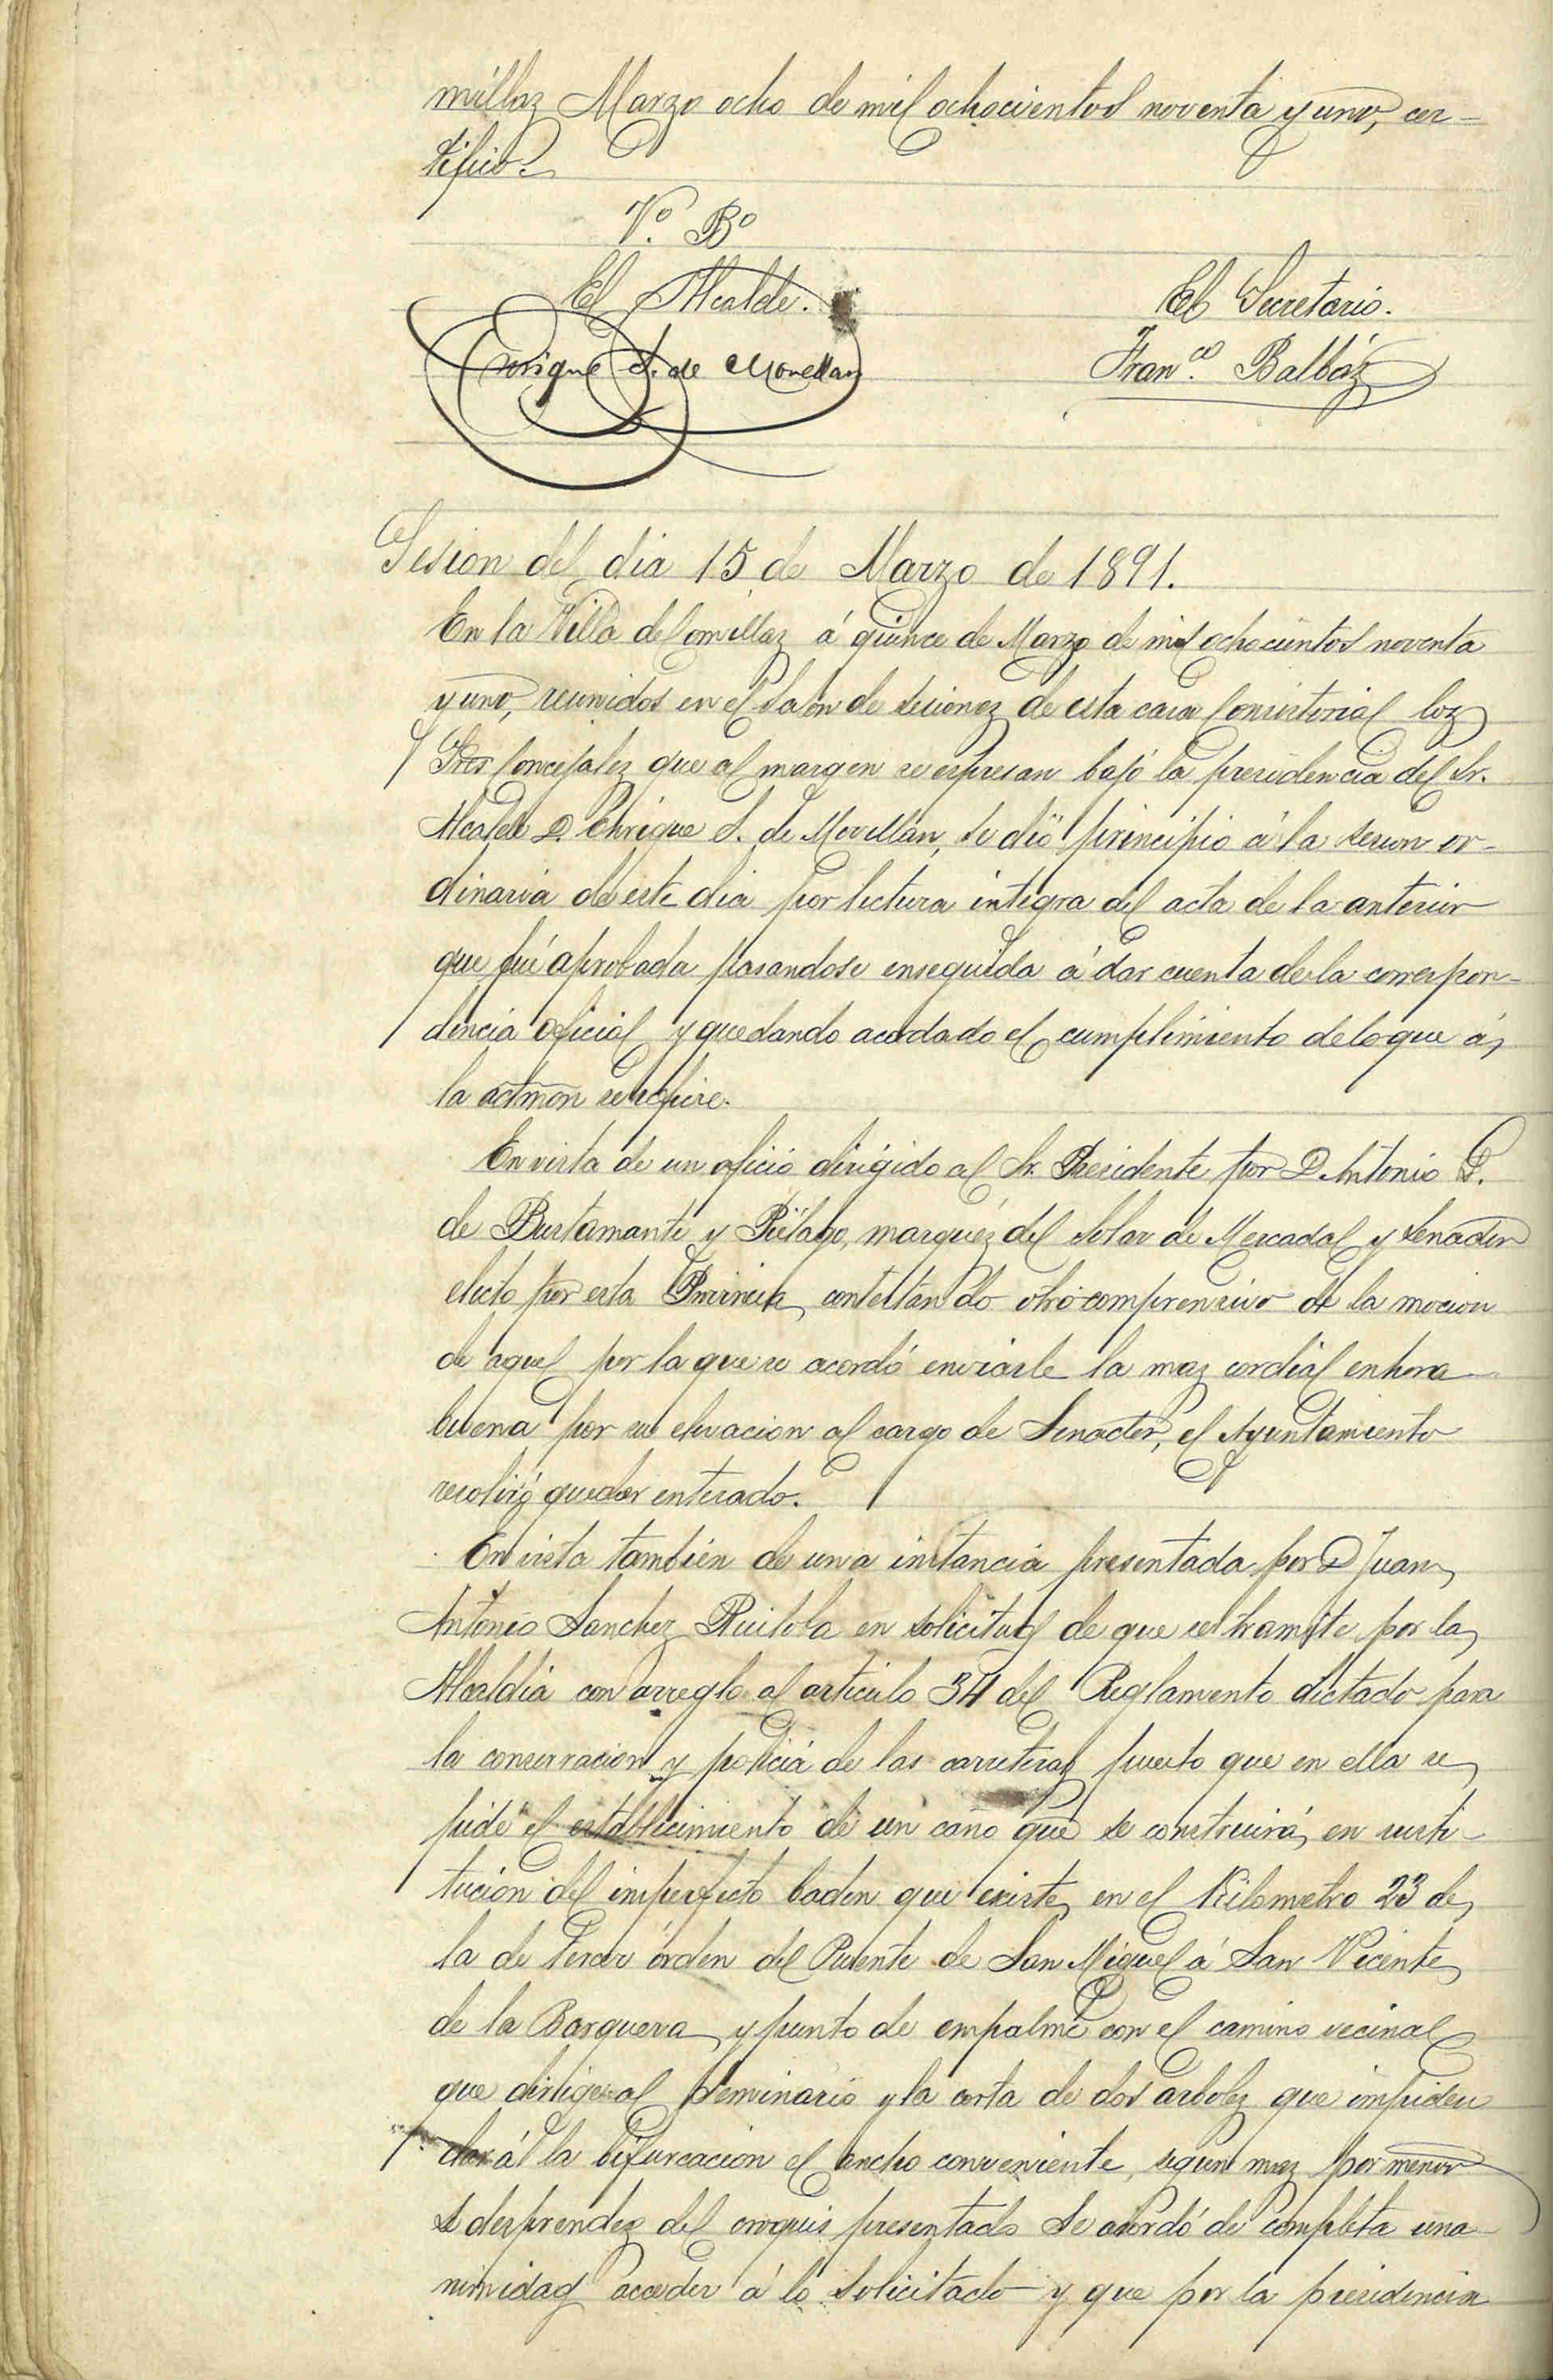 millaz Marzo ocho de mil ochocientos noventa y uno, cer-
tifico.
V.º B.º
El Alcalde.
El Secretario.
Enrique S. de Movellan
Fran.co Balbáz
Sesion del dia 15 de Marzo de 1891.
En la Villa de Comillaz á quince de Marzo de mil ochocientos noventa
y uno, reunidos en el Salon de sesionez de esta casa Consistorial loz
Sres Concejalez que al margen se espresan bajó la presidencia del Sr.
Alcalde D. Enrique S. de Movellan, se dió principio á la sesion or-
dinaria de este dia por lectura integra del acta de la anterior
que fué aprobada pasandose enseguida á dar cuenta de la correspon-
dencia oficial y quedando acordado el cumplimiento de lo que á
la admon se refiere.
En vista de un oficio dirigido al Sr. Presidente por D Antonio G.
de Bustamante y Piélago, marquéz del Solar de Mercadal y Senador
electo por esta Provincia, contestando otro comprensivo de la mocion
de aquel por la que se acordó enviarle la maz cordial enhora
buena por su elevacion al cargo de Senador, el Ayuntamiento
resolvió quedar enterado.
En vista también de una instancia presentada por D Juan
Antonio Sanchez Ruiloba en solicitud de que se tramite por la
Alcaldia con arreglo al articulo 34 del Reglamento dictado para
la conservacion y policia de las carreteraz puesto que en ella se
pide el establecimiento de un caño que se construirá en susti-
tucion del imperfecto baden que existe en el Kilometro 23 de
la de tercer órden del Puente de San Miguel á San Vicente
de la Barquera y punto de empalme con el camino vecinal
que dirige al Seminario y la corta de dos arbolez que impiden
dar á la bifurcacion el ancho conveniente, segun maz por menor
se desprendez del croquis presentado Se acordó de completa una
nimidad acceder á lo solicitado y que por la presidencia